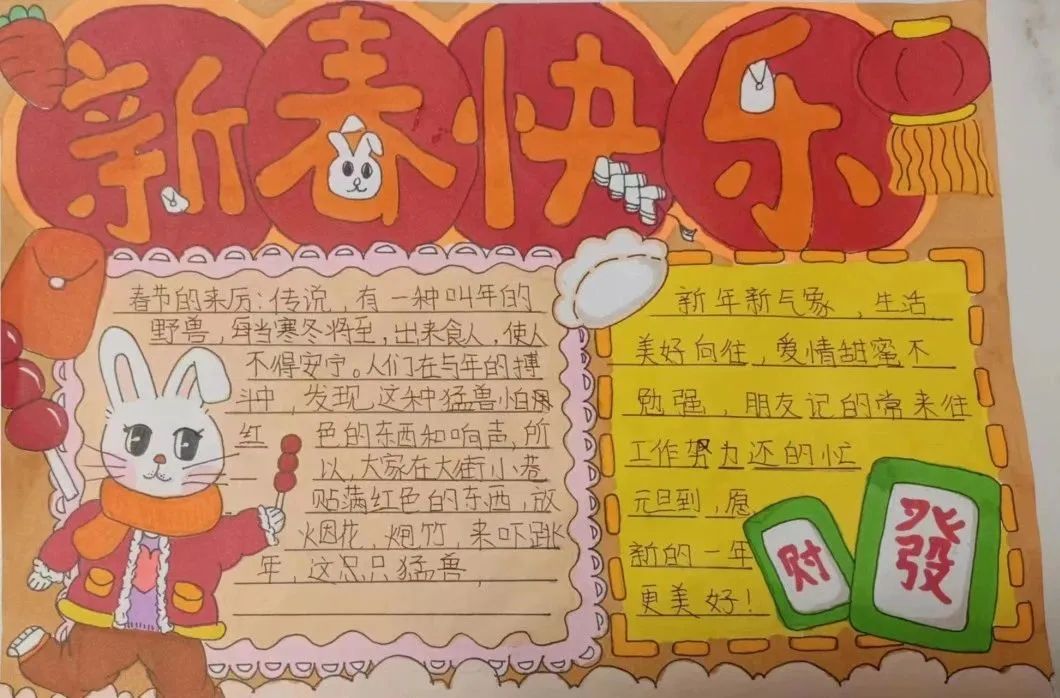 新春快乐
春节的来历:传说,有一种叫年的
野兽,每当寒冬将至,出来食人,使人
不得安宁。人们在与年的搏
斗中,发现,这种猛兽怕
红色的东西和响声,所
以,大家在大街小巷
贴满红色的东西,放
烟花,炮竹,来吓跳
年,这只猛兽,
新年新气象,生活
美好向往,爱情甜蜜不
勉强,朋友记的常来往
工作努力还的忙
元旦到,愿
新的一年
更美好!
财
發